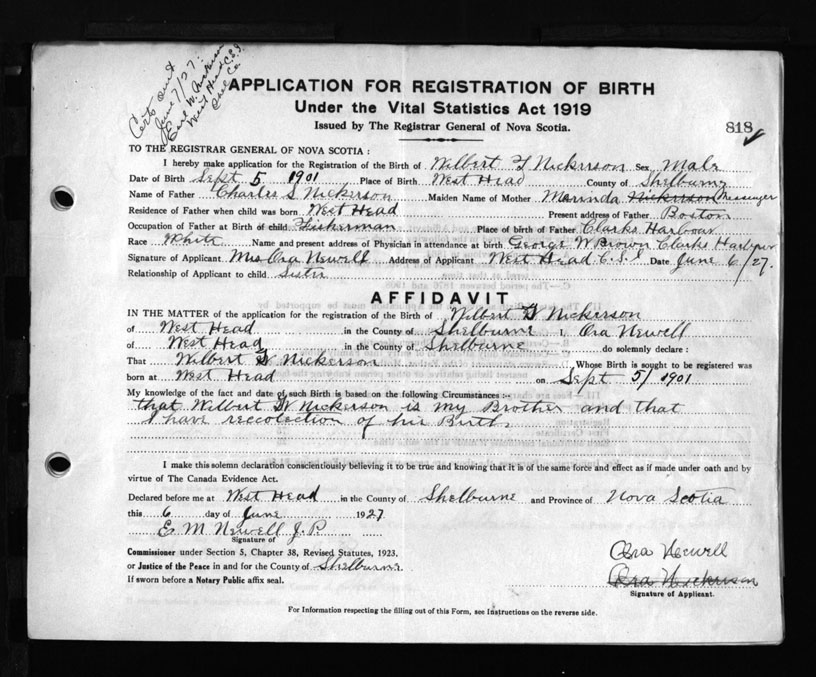 Certs sent
June 7/27.
Earl W. Nickerson
West Head C.S.I.
Shel Co
APPLICATION FOR REGISTRATION OF BIRTH
Under the Vital Statistics Act 1919
Issued by The Registrar General of Nova Scotia.
818
TO THE REGISTRAR GENERAL OF NOVA SCOTIA :
I hereby make application for the Registration of the Birth of Wilbert Nickerson Sex Male
Date of Birth Sept 5 1901 Place of Birth West Head County of Shelburne
Name of Father Charles S Nickerson Maiden Name of Mother Marinda Nickerson Messenger
Residence of Father when child was born West Head Present address of Father Boston
Occupation of Father at Birth of child Fisherman Place of birth of Father Clarks Harbour
Race White Name and present address of Physician in attendance at birth George W Brown Clarks Harbour
Signature of Applicant Mrs Ora Newell Address of Applicant West Head C.S.I Date June 6/27.
Relationship of Applicant to child Sister
AFFIDAVIT
IN THE MATTER of the application for the registration of the Birth of Wilbert Nickerson
of West Head in the County of Shelburne I, Ora Newell
of West Head in the County of Shelburne do solemnly declare :
That Wilbert Nickerson Whose Birth is sought to be registered was
born at West Head on Sept 5/1901
My knowledge of the fact and date of such Birth is based on the following Circumstances :-
that Wilbert Nickerson is my Brother and that
I have reccolection of his Birth.
I make this solemn declaration conscientiously believing it to be true and knowing that it is of the same force and effect as if made under oath and by
virtue of The Canada Evidence Act.
Declared before me at West Head in the County of Shelburne and Province of Nova Scotia
this 6 day of June 1927
E M Newell J.P.
Signature of
Commissioner under Section 5, Chapter 38, Revised Statutes, 1923.
or Justice of the Peace in and for the County of Shelburne
If sworn before a Notary Public affix seal.
Ora Newell
Ora Nickerson
Signature of Applicant.
For Information respecting the filling out of this Form, see Instructions on the reverse side.